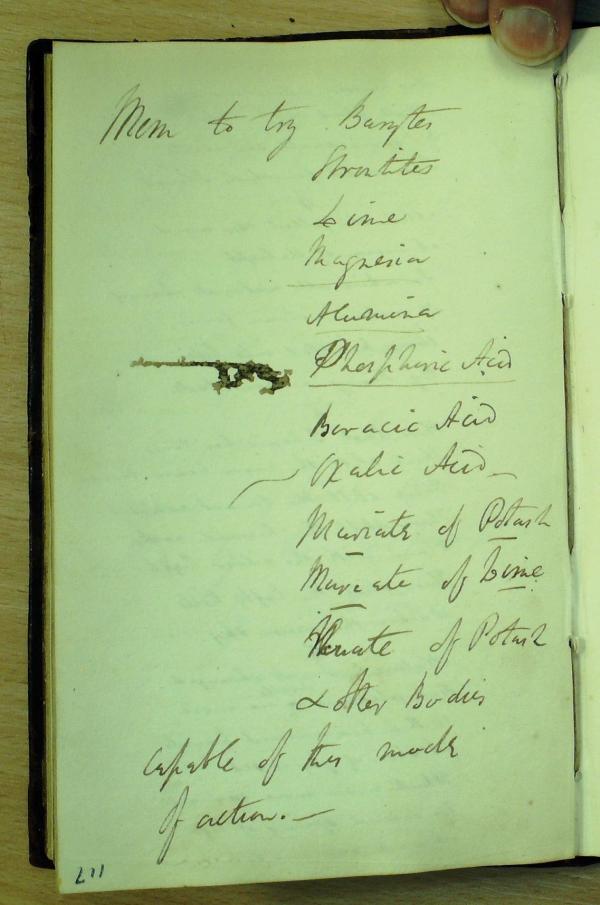 Mem to try Barytes
Strontites
Lime
Magnesia
Alumina
Phosphoric Acid
Boracic Acid
Oxalic Acid
Muriate of Potash
Muriate of Lime
of Potash
& other Bodies
capable of this mode
of action. —